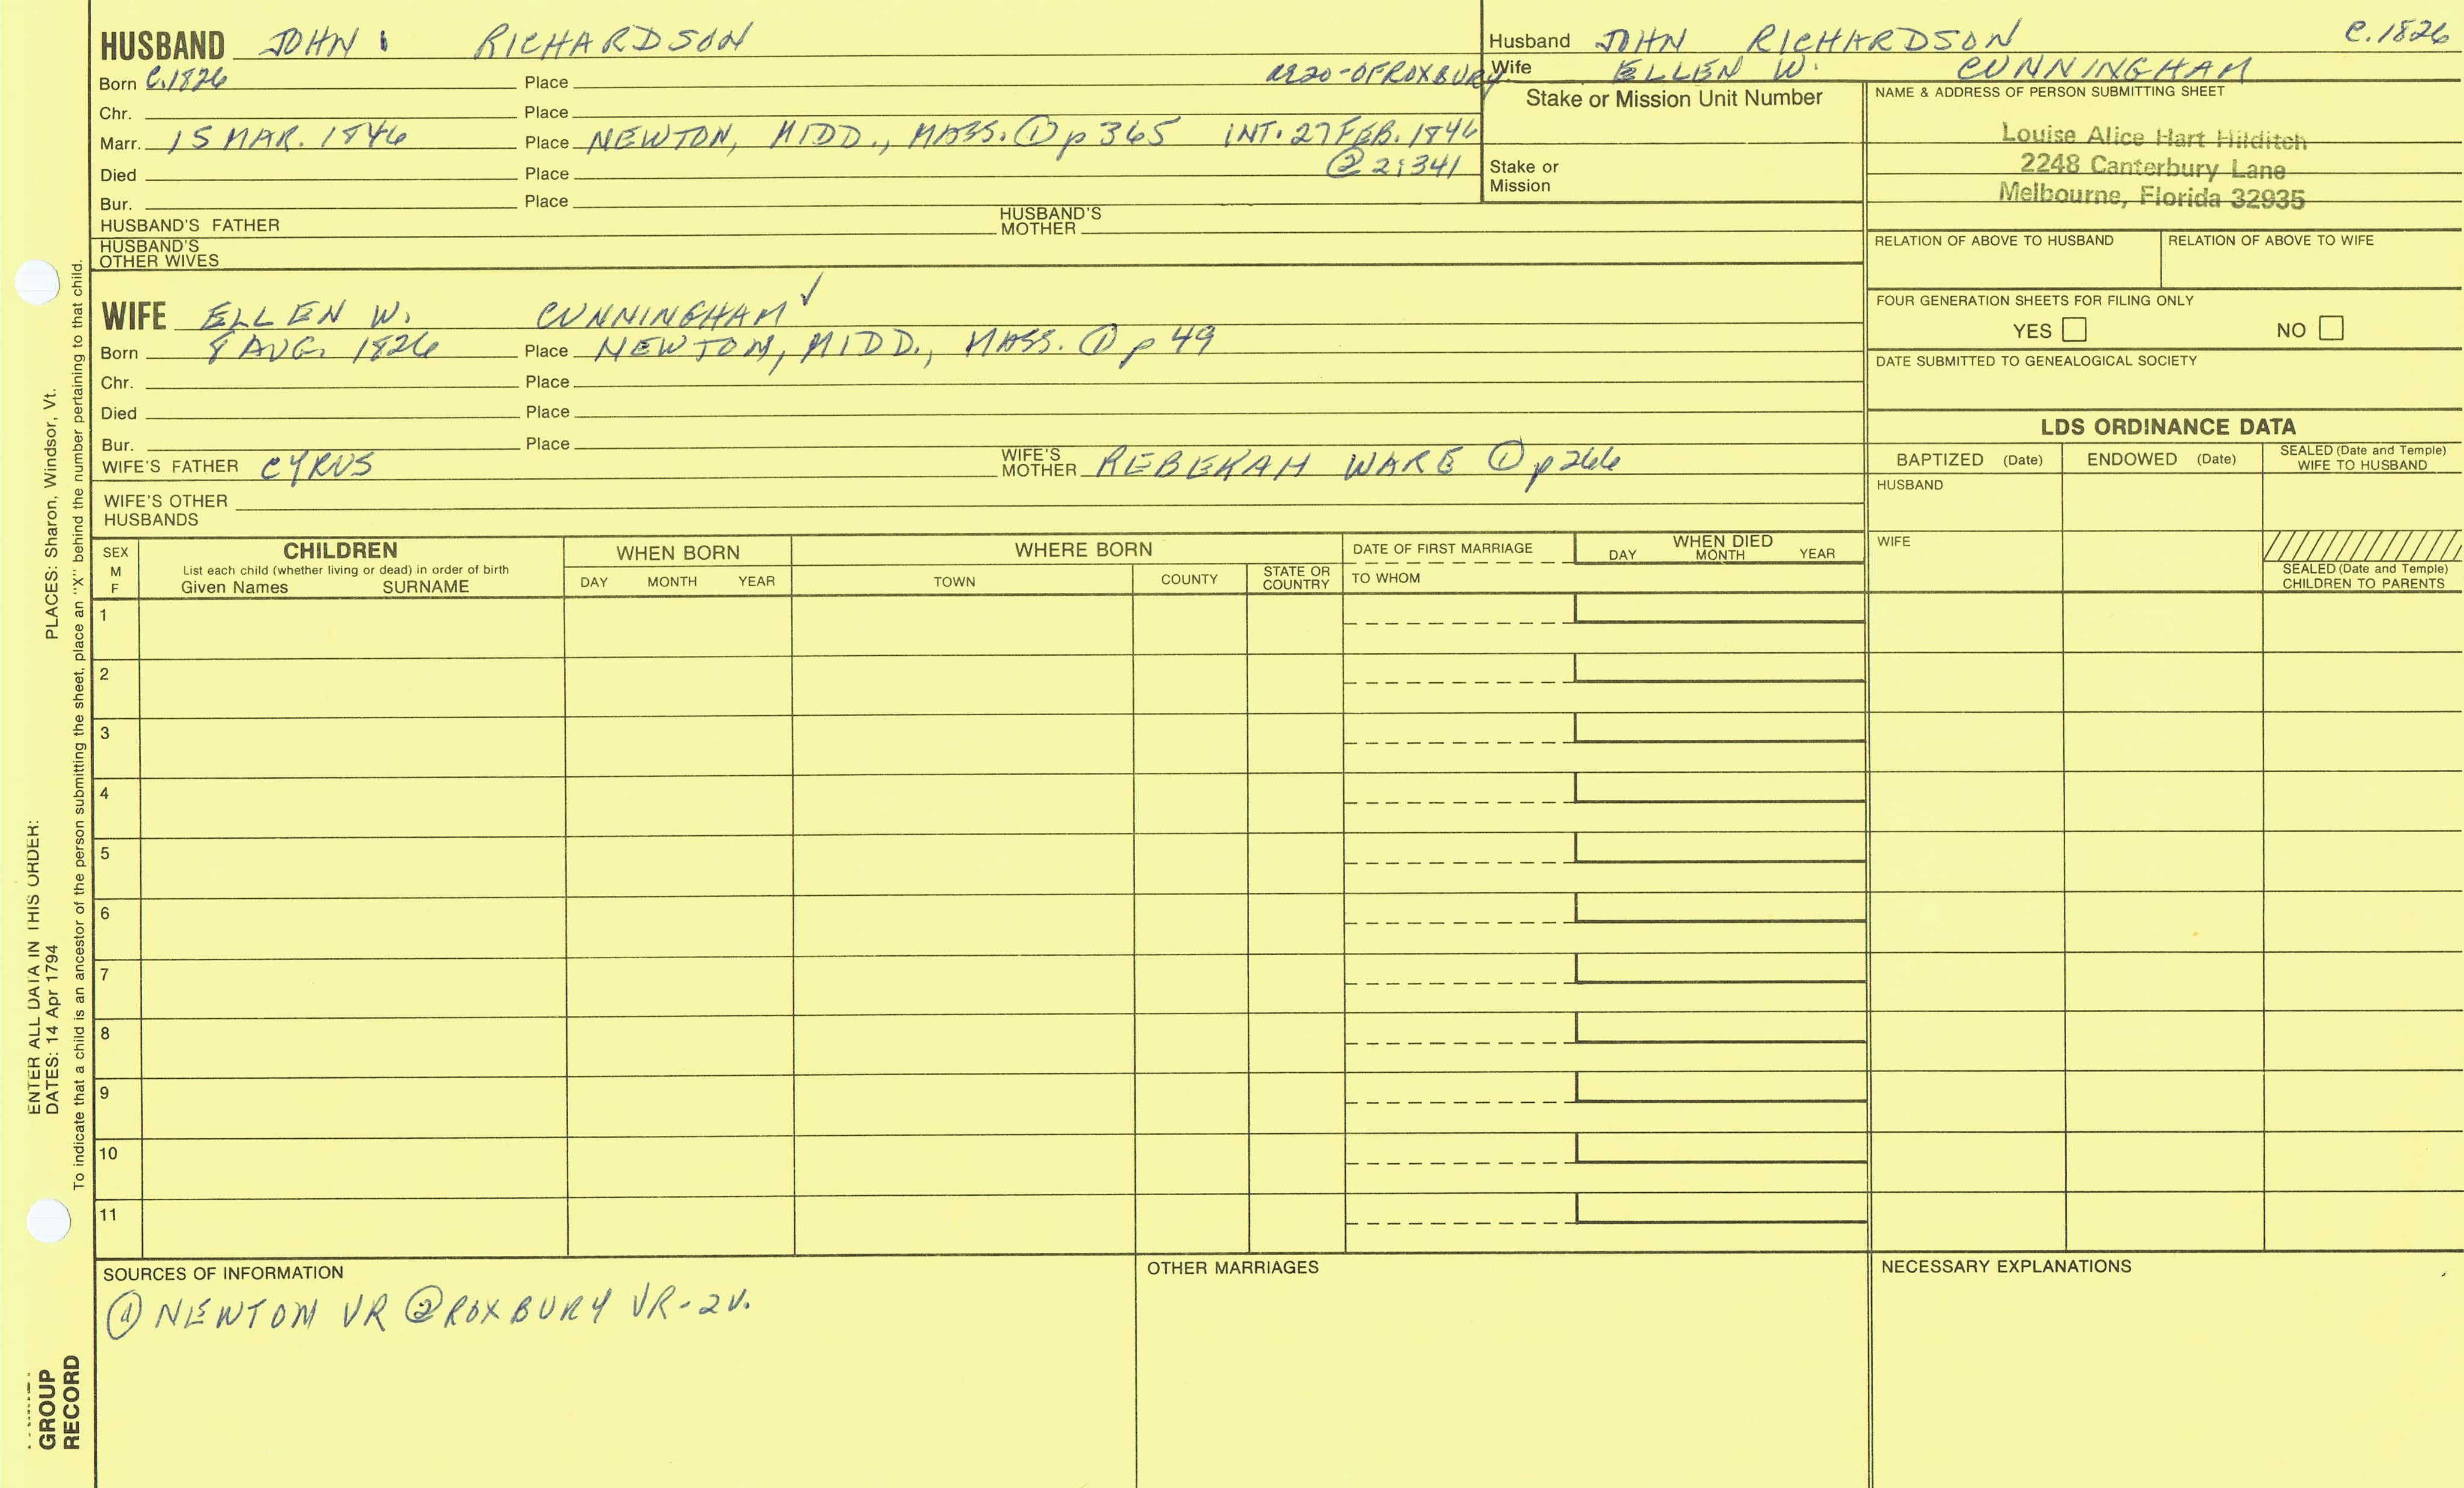 HUSBAND JOHN RICHARDSON
Born C.1826 Place Æ20-OF ROXBURY
Chr. Place
Marr. 15 MAR. 1846 Place NEWTON, MIDD., MASS. ① p 365 INT. 27 FEB. 1846
Died Place ② 2:341
Bur. Place
HUSBAND'S FATHER HUSBAND'S MOTHER
HUSBAND'S OTHER WIVES
Husband JOHN RICHARDSON C.1826
Wife ELLEN W. CUNNINGHAM
Stake or Mission Unit Number
Stake or
Mission
NAME & ADDRESS OF PERSON SUBMITTING SHEET
Louise Alice Hart Hilditch
2248 Canterbury Lane
Melbourne, Florida 32935
RELATION OF ABOVE TO HUSBAND RELATION OF ABOVE TO WIFE
FOUR GENERATION SHEETS FOR FILING ONLY
YES NO
DATE SUBMITTED TO GENEALOGICAL SOCIETY
WIFE ELLEN W. CUNNINGHAM ✓
Born 8 AUG. 1826 Place NEWTON, MIDD., MASS. ① p 49
Chr. Place
Died Place
Bur. Place
WIFE'S FATHER CYRUS WIFE'S MOTHER REBEKAH WARE ① p 266
WIFE'S OTHER
HUSBANDS
LDS ORDINANCE DATA
BAPTIZED (Date) ENDOWED (Date) SEALED (Date and Temple) WIFE TO HUSBAND
HUSBAND
WIFE
SEALED (Date and Temple)
CHILDREN TO PARENTS
SEX
M
F
CHILDREN
List each child (whether living or dead) in order of birth
Given Names SURNAME
WHEN BORN
DAY MONTH YEAR
WHERE BORN
TOWN COUNTY STATE OR COUNTRY
DATE OF FIRST MARRIAGE
TO WHOM
WHEN DIED
DAY MONTH YEAR
1
2
3
4
5
6
7
8
9
10
11
SOURCES OF INFORMATION
① NEWTON VR ② ROXBURY VR-2V.
OTHER MARRIAGES
NECESSARY EXPLANATIONS
ENTER ALL DATA IN THIS ORDER: PLACES: Sharon, Windsor, Vt.
DATES: 14 Apr 1794
To indicate that a child is an ancestor of the person submitting the sheet, place an "X" behind the number pertaining to that child.
GROUP
RECORD